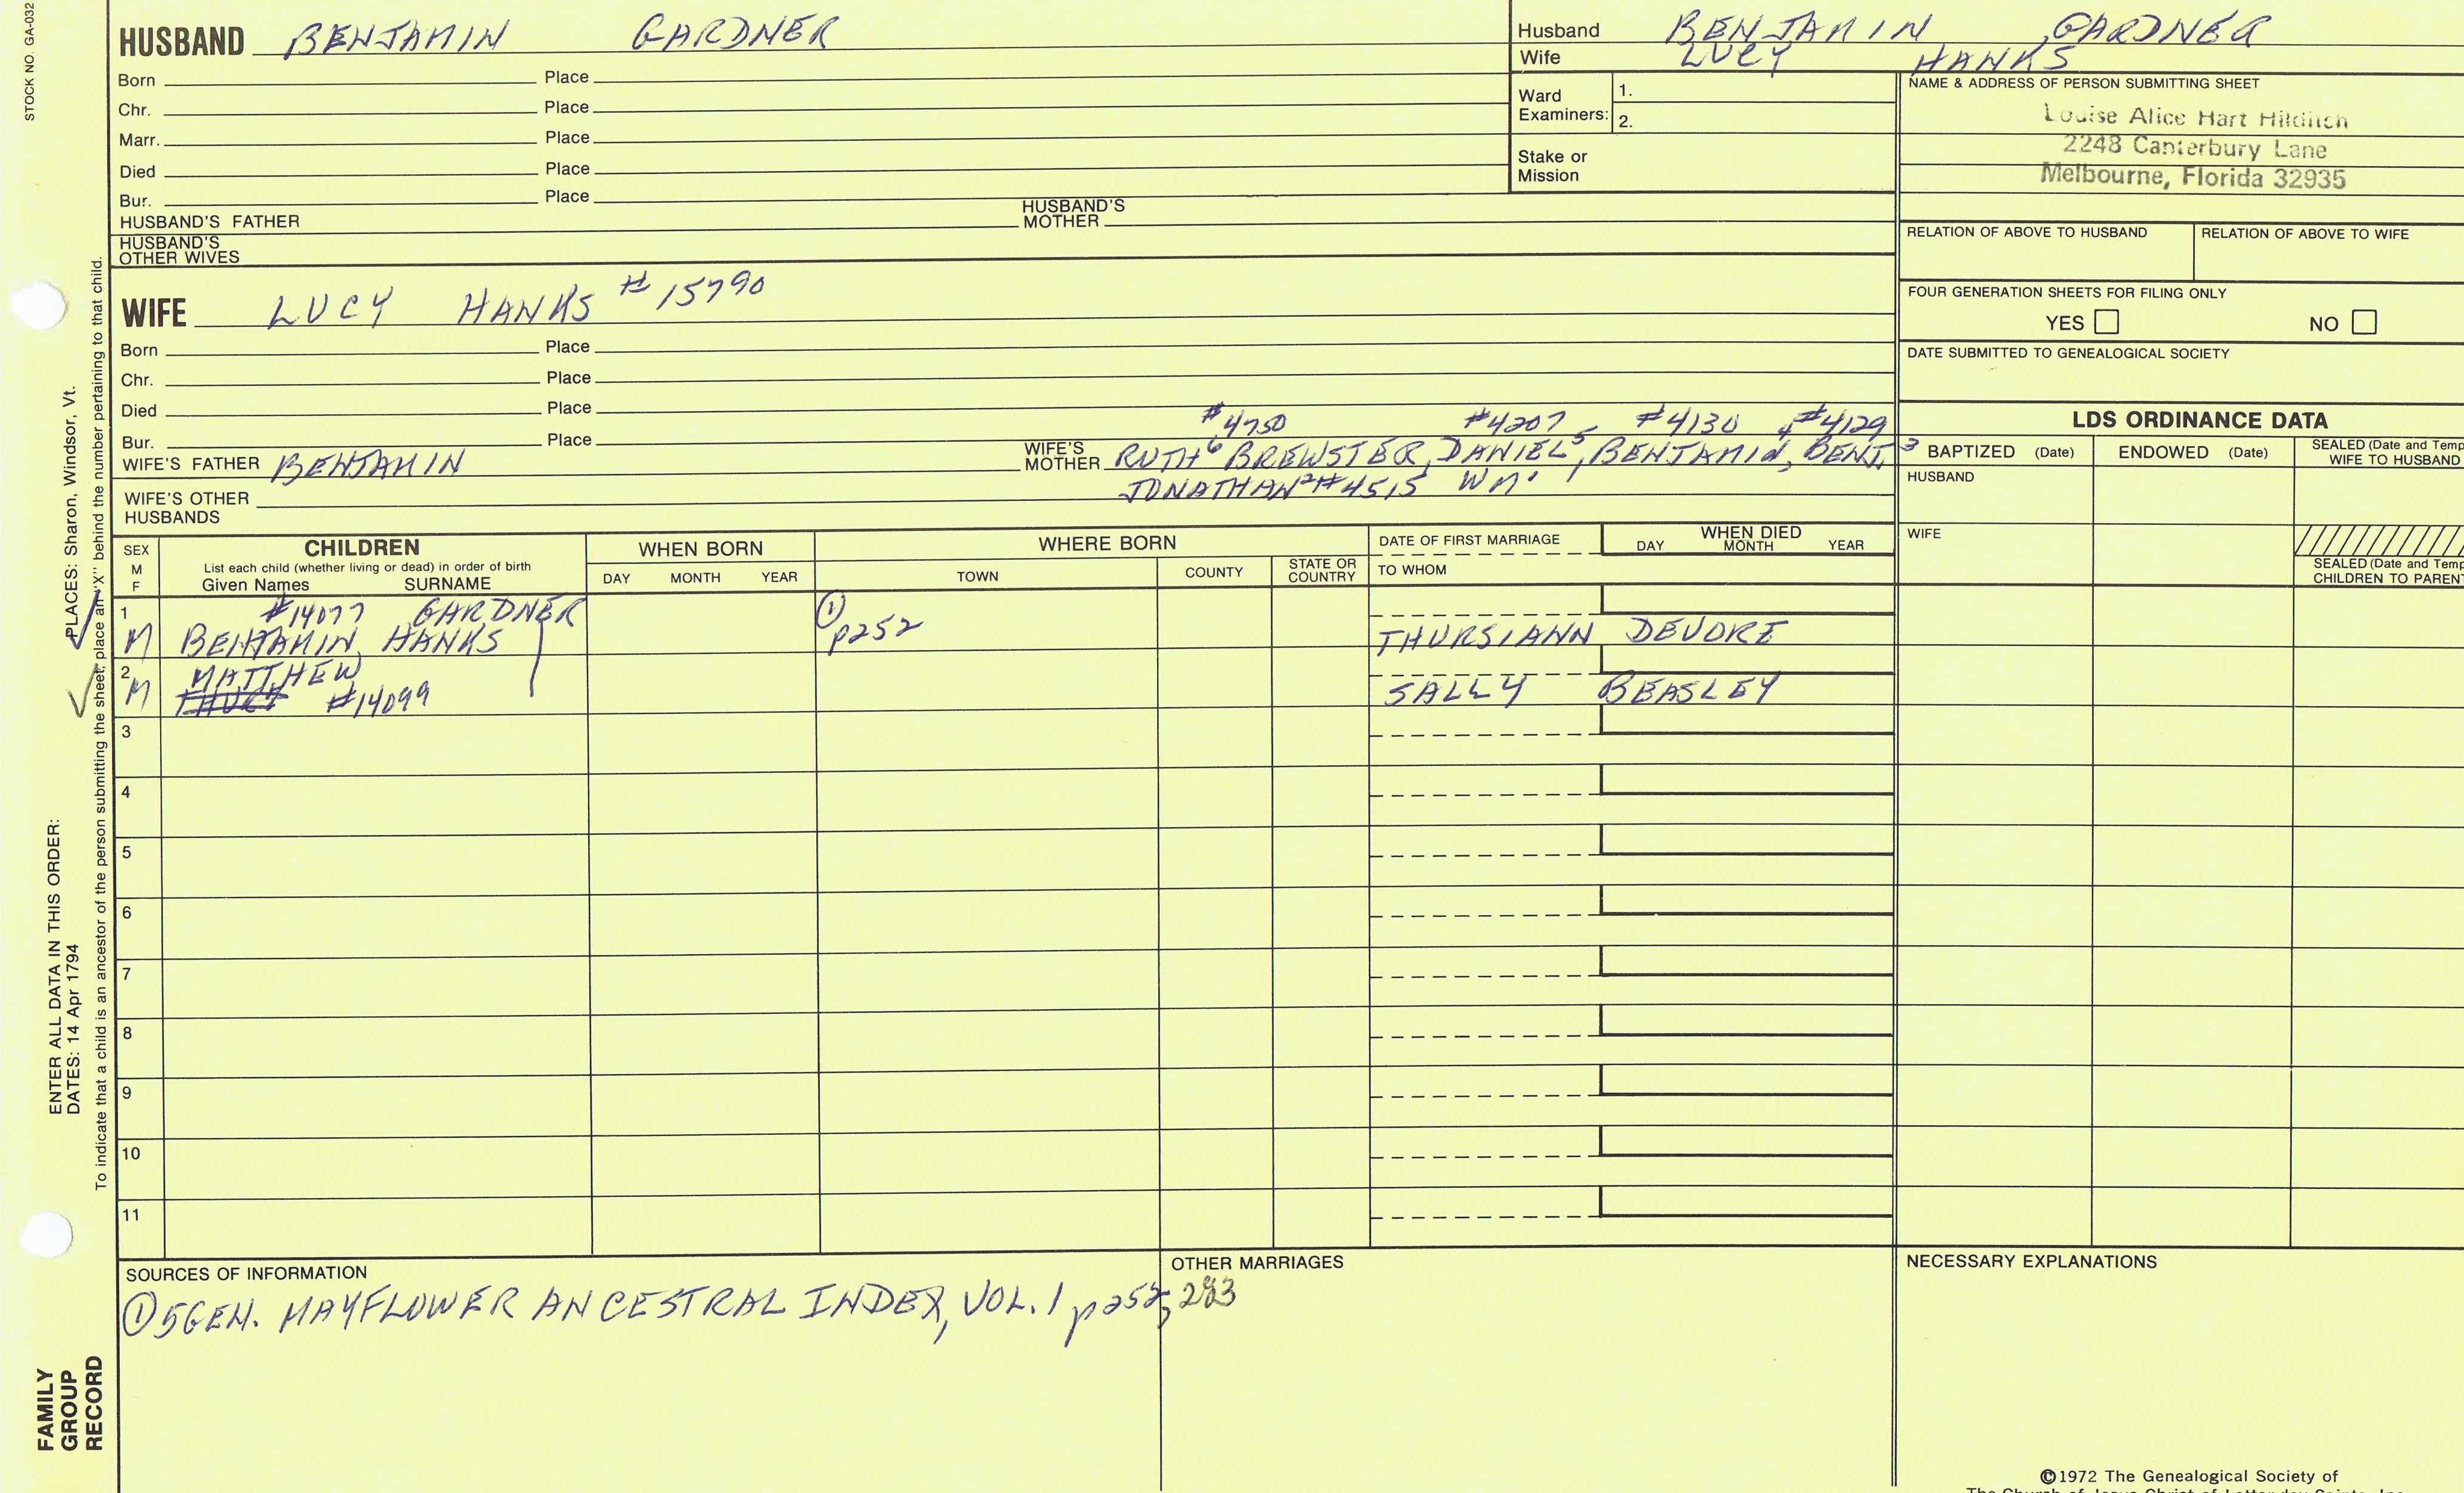 STOCK NO. GA-032
HUSBAND BENJAMIN GARDNER
Born Place
Chr. Place
Marr. Place
Died Place
Bur. Place
HUSBAND'S FATHER HUSBAND'S MOTHER
HUSBAND'S OTHER WIVES
Husband BENJAMIN GARDNER
Wife LUCY HANKS
Ward Examiners: 1.
2.
Stake or Mission
NAME & ADDRESS OF PERSON SUBMITTING SHEET
Louise Alice Hart Hilditch
2248 Canterbury Lane
Melbourne, Florida 32935
RELATION OF ABOVE TO HUSBAND RELATION OF ABOVE TO WIFE
FOUR GENERATION SHEETS FOR FILING ONLY
YES NO
DATE SUBMITTED TO GENEALOGICAL SOCIETY
WIFE LUCY HANKS #15790
Born Place
Chr. Place
Died Place
Bur. Place
#4750 #4207 #4130 #4129
WIFE'S FATHER BENJAMIN WIFE'S MOTHER RUTH6 BREWSTER, DANIEL5, BENJAMIN, BENJ.3
JONATHAN2 #4515 WM1
WIFE'S OTHER HUSBANDS
LDS ORDINANCE DATA
BAPTIZED (Date) ENDOWED (Date) SEALED (Date and Temp
WIFE TO HUSBAND
HUSBAND
WIFE
SEALED (Date and Temp
CHILDREN TO PARENT
SEX
M
F
CHILDREN
List each child (whether living or dead) in order of birth
Given Names SURNAME
WHEN BORN
DAY MONTH YEAR
WHERE BORN
TOWN COUNTY STATE OR COUNTRY
DATE OF FIRST MARRIAGE
TO WHOM
WHEN DIED
DAY MONTH YEAR
1 #14077 GARDNER ①
M BENJAMIN HANKS p252 THURSIANN DEVORE
2 MATTHEW
M #14099 SALLY BEASLEY
3
4
5
6
7
8
9
10
11
SOURCES OF INFORMATION
① 5GEN. MAYFLOWER ANCESTRAL INDEX, VOL. 1 p252,
OTHER MARRIAGES
NECESSARY EXPLANATIONS
PLACES: Sharon, Windsor, Vt.
ENTER ALL DATA IN THIS ORDER:
DATES: 14 Apr 1794
To indicate that a child is an ancestor of the person submitting the sheet, place an "X" behind the number pertaining to that child.
FAMILY
GROUP
RECORD
©1972 The Genealogical Society of
The Church of Jesus Christ of Latter-day Saints, Inc.